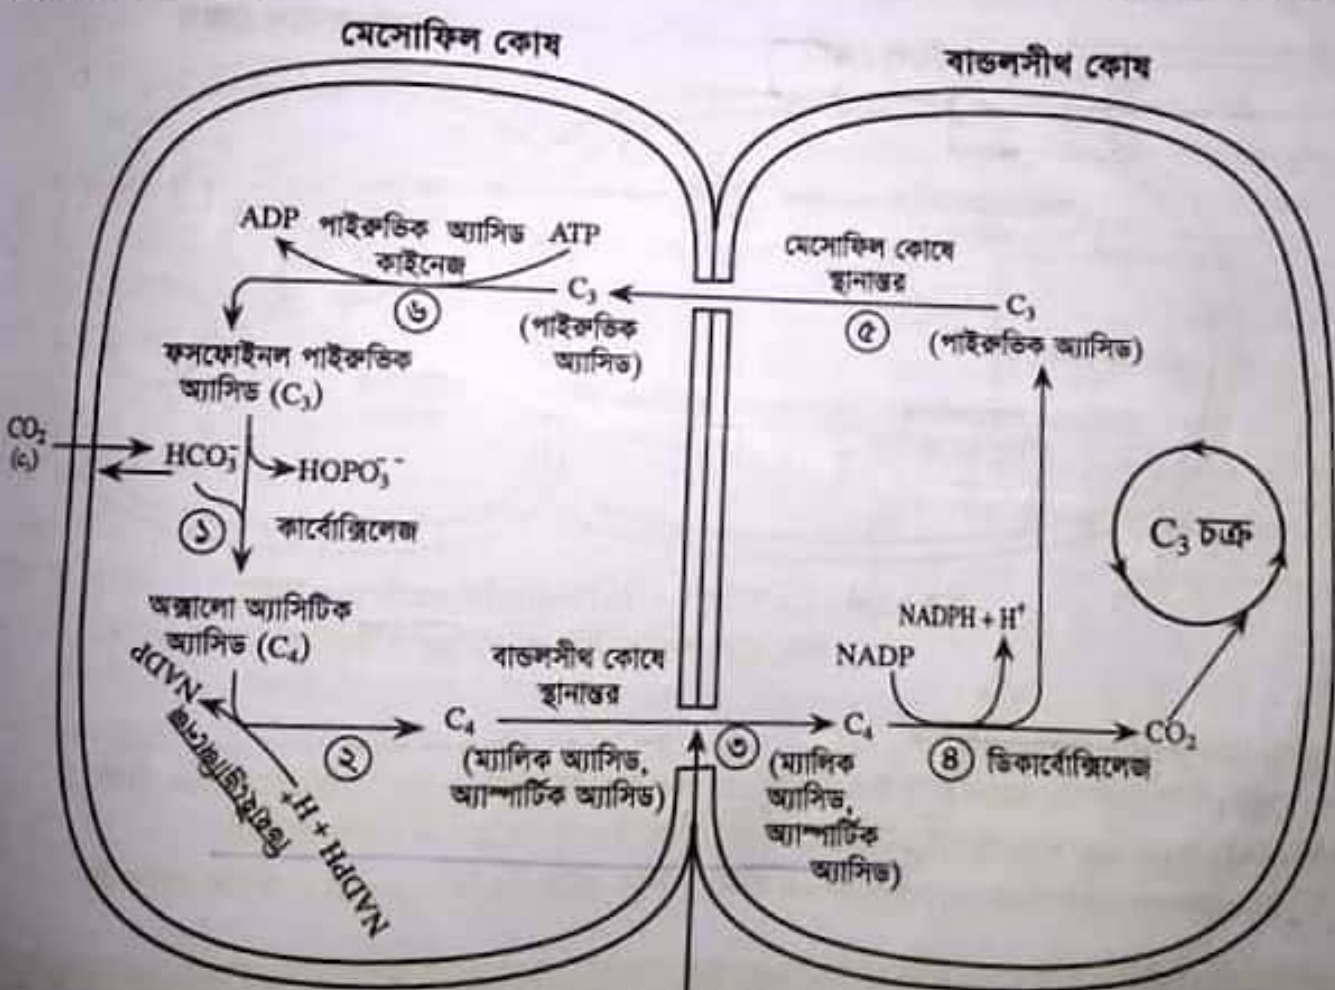 মেসোফিল কোষ
বান্ডলসীথ কোষ
ADP পাইরুভিক অ্যাসিড ATP
কাইনেজ
৬
C₃
(পাইরুভিক
অ্যাসিড)
মেসোফিল কোষে
স্থানান্তর
৫
C₃
(পাইরুভিক অ্যাসিড)
ফসফোইনল পাইরুভিক
অ্যাসিড (C₃)
CO₂
HCO₃⁻
HOPO₃⁻⁻
১
কার্বোক্সিলেজ
C₃ চক্র
অক্সালো অ্যাসিটিক
অ্যাসিড (C₄)
NADP
ডিহাইড্রোজিনেজ
NADPH + H⁺
২
C₄
(ম্যালিক অ্যাসিড,
অ্যাস্পার্টিক অ্যাসিড)
বান্ডলসীথ কোষে
স্থানান্তর
৩
C₄
(ম্যালিক
অ্যাসিড,
অ্যাস্পার্টিক
অ্যাসিড)
NADP
NADPH + H⁺
৪
ডিকার্বোক্সিলেজ
CO₂